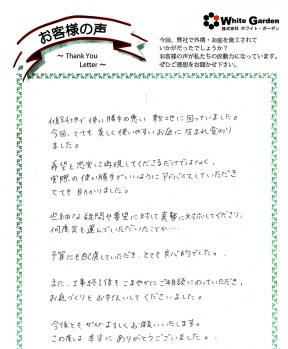 お客様の声
～ Thank You
Letter ～
White Garden
株式会社 ホワイト・ガーデン
今回、弊社で外構・お庭を施工されて
いかがだったでしょうか？
お客様の声が私たちの原動力になっています。
ぜひご感想をお聞かせ下さい。
傾斜地で使い勝手の悪い敷地に困っていました。
今回、とても美しく使いやすいお庭に生まれ変わり
ました。
希望を忠実に再現してくださるだけではなく、
実際の使い勝手がいいようにアドバイスしていただき
とても助かりました。
些細な疑問や要望に対して真摯に対応してくださり、
何度足を運んでいただいたことか…
予算にも配慮していただき、とても良心的でした。
また、工事終了後もこまやかにご相談にのっていただき、
お庭づくりをお手伝いしてくださいました。
今後ともぜひよろしくお願いいたします。
この度は本当にありがとうございました。